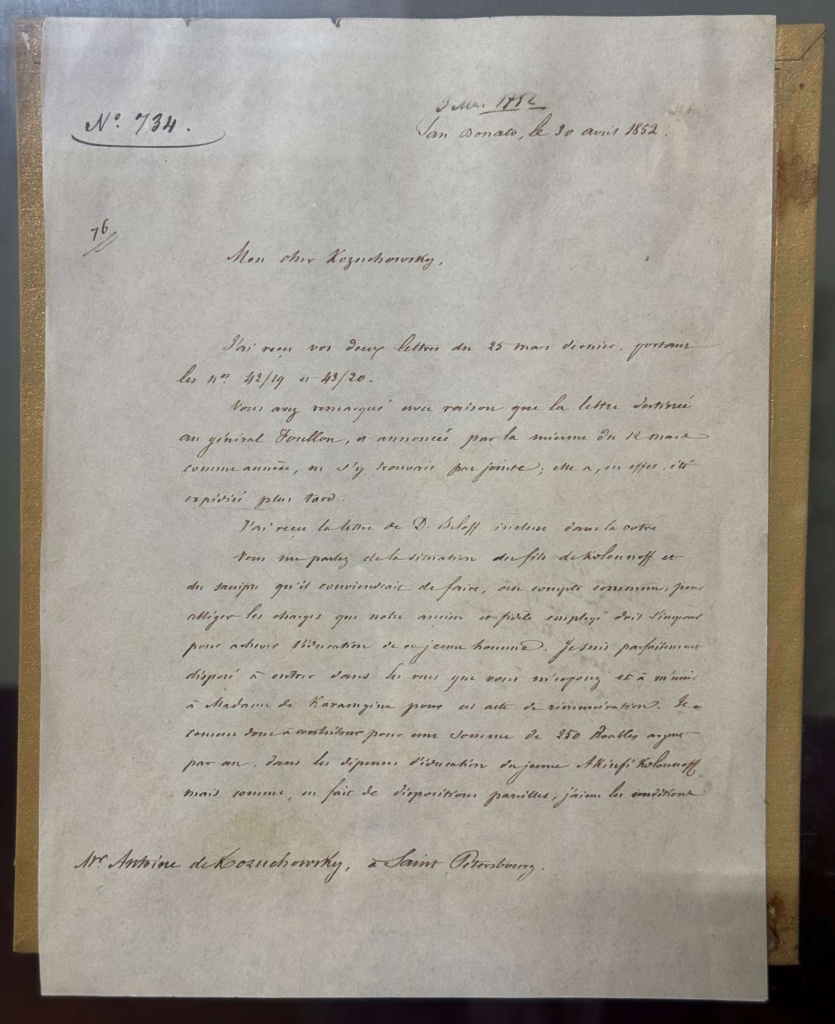 N° 734.
3 Mai 1852
San Donato, le 30 avril 1852.
76
Mon cher Kozuchowsky,
J'ai reçu vos deux lettres du 25 mars dernier, portant
les nos 42/19 et 43/20.
Vous avez remarqué avec raison que la lettre destinée
au général Foullon, et annoncée par la mienne du 12 mars
comme annexée, ne s'y trouvait pas jointe; elle a, en effet, été
expédiée plus tard.
J'ai reçu la lettre de D. Beloff incluse dans la votre
Vous me parlez de la situation du fils de Kolounoff et
du sacrifice qu'il conviendrait de faire, en compte commun, pour
alléger les charges que notre ancien et fidèle employé doit s'imposer
pour achever l'éducation de ce jeune homme. Je suis parfaitement
disposé à entrer dans les vues que vous m'exposez et à m'unir
à Madame de Karamzine pour cet acte de rémunération. Je
consens donc à contribuer pour une somme de 250 Roubles argent
par an, dans les dépenses d'éducation du jeune Akinfi Kolounoff
mais comme, en fait de dispositions pareilles, j'aime les conditions
Mr Antoine de Kozuchowsky, à Saint Pétersbourg.